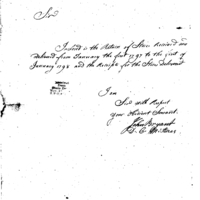 Sir
Inclosed is the Return of Stores Received and
delivered from January the first 1797 to the first of
January 1798 and the Receipts for the Stores delivered
I am
Sir with Respect
your Obedient Servant
John Bryant